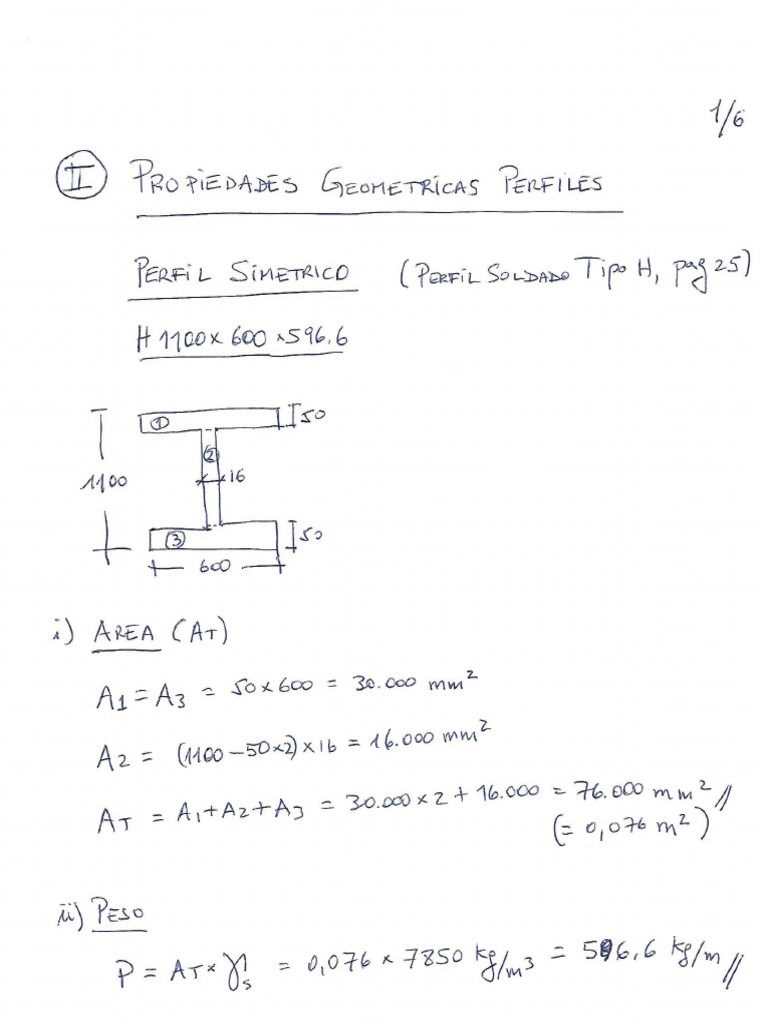 1/6
II PROPIEDADES GEOMETRICAS PERFILES
PERFIL SIMETRICO (PERFIL SOLDADO TIPO H, pag 25)
H 1100 x 600 x 596,6
1 50
2
1100 16
3 50
600
i) AREA (AT)
A1 = A3 = 50 x 600 = 30.000 mm²
A2 = (1100 - 50 x 2) x 16 = 16.000 mm²
AT = A1 + A2 + A3 = 30.000 x 2 + 16.000 = 76.000 mm² //
(= 0,076 m²)
ii) PESO
P = AT x γs = 0,076 x 7850 kg/m³ = 596,6 kg/m //